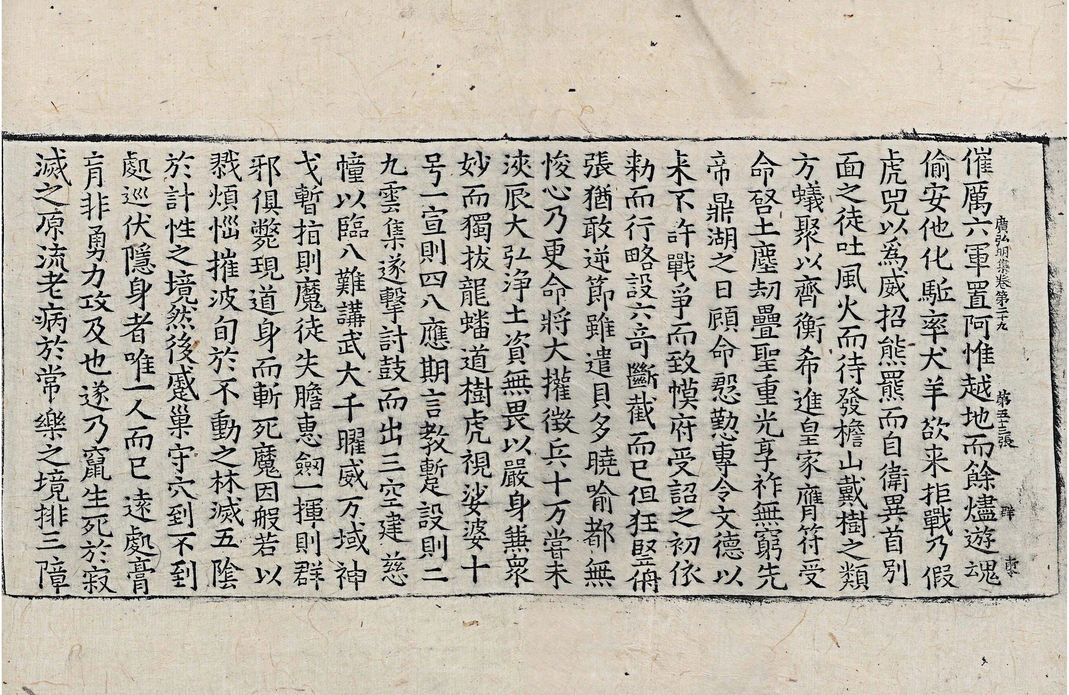 催厲六軍置阿惟越地而餘燼遊魂
廣弘明集卷第二十九 第五十三張 群
偷安他化駈率犬羊欲来拒戰乃假
虎兕以為威招熊羆而自衛異首別
面之徒吐風火而待發檐山戴樹之類
方蟻聚以齊衡希進皇家膺符受
命啓土塵劫疊聖重光享祚無窮先
帝鼎湖之日顧命慇懃專令文德以
来不許戰爭而致幙府受詔之初依
勑而行略設六奇斷截而已但狂竪俯
張猶敢逆節雖遣貝多曉喻都無
悛心乃更命將大擢徴兵十万嘗未
浹辰大弘浄土資無畏以嚴身兼衆
妙而獨拔龍蟠道樹虎視娑婆十
号一宣則四八應期言教蹔設則二
九雲集遂擊討鼓而出三空建慈
幢以臨八難講武大千曜威万域神
戈暫指則魔徒失膽惠劔一揮則群
邪俱斃現道身而斬死魔因般若以
戮煩惱摧波旬於不動之林滅五陰
於計性之境然後蹙巢守穴到不到
處巡伏隱身者唯一人而已遠處膏
肓非勇力攻及也遂乃竄生死於寂
滅之原流老病於常樂之境排三障